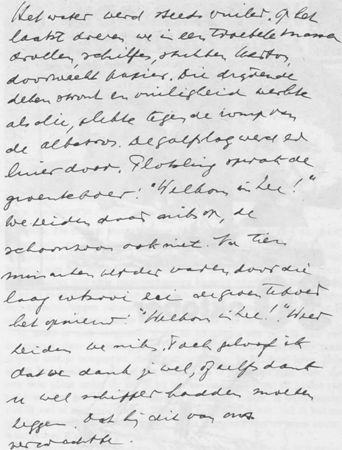 Het water werd steeds vuiler. Op het
laatst dreven we in een troebele massa
drollen, schilfers, stukken karton,
doorweekt papier. Die drijvende
deken stront en vuiligheid werkte
als olie, plakte tegen de romp van
de albatros. De golfslag werd er
luier door. Plotseling sprak de
groenteboer: "Welkom in zee!"
We zeiden daar niks op, de
schoonzoon ook niet. Na tien
minuten verder varen door die
laag zei de groenteboer
het opnieuw: "Welkom in zee!" Weer
zeiden we niks. Toch geloof ik
dat we dank je wel, of zelfs dank
u wel schipper hadden moeten
zeggen. Dat hij dit van ons
verwachtte.